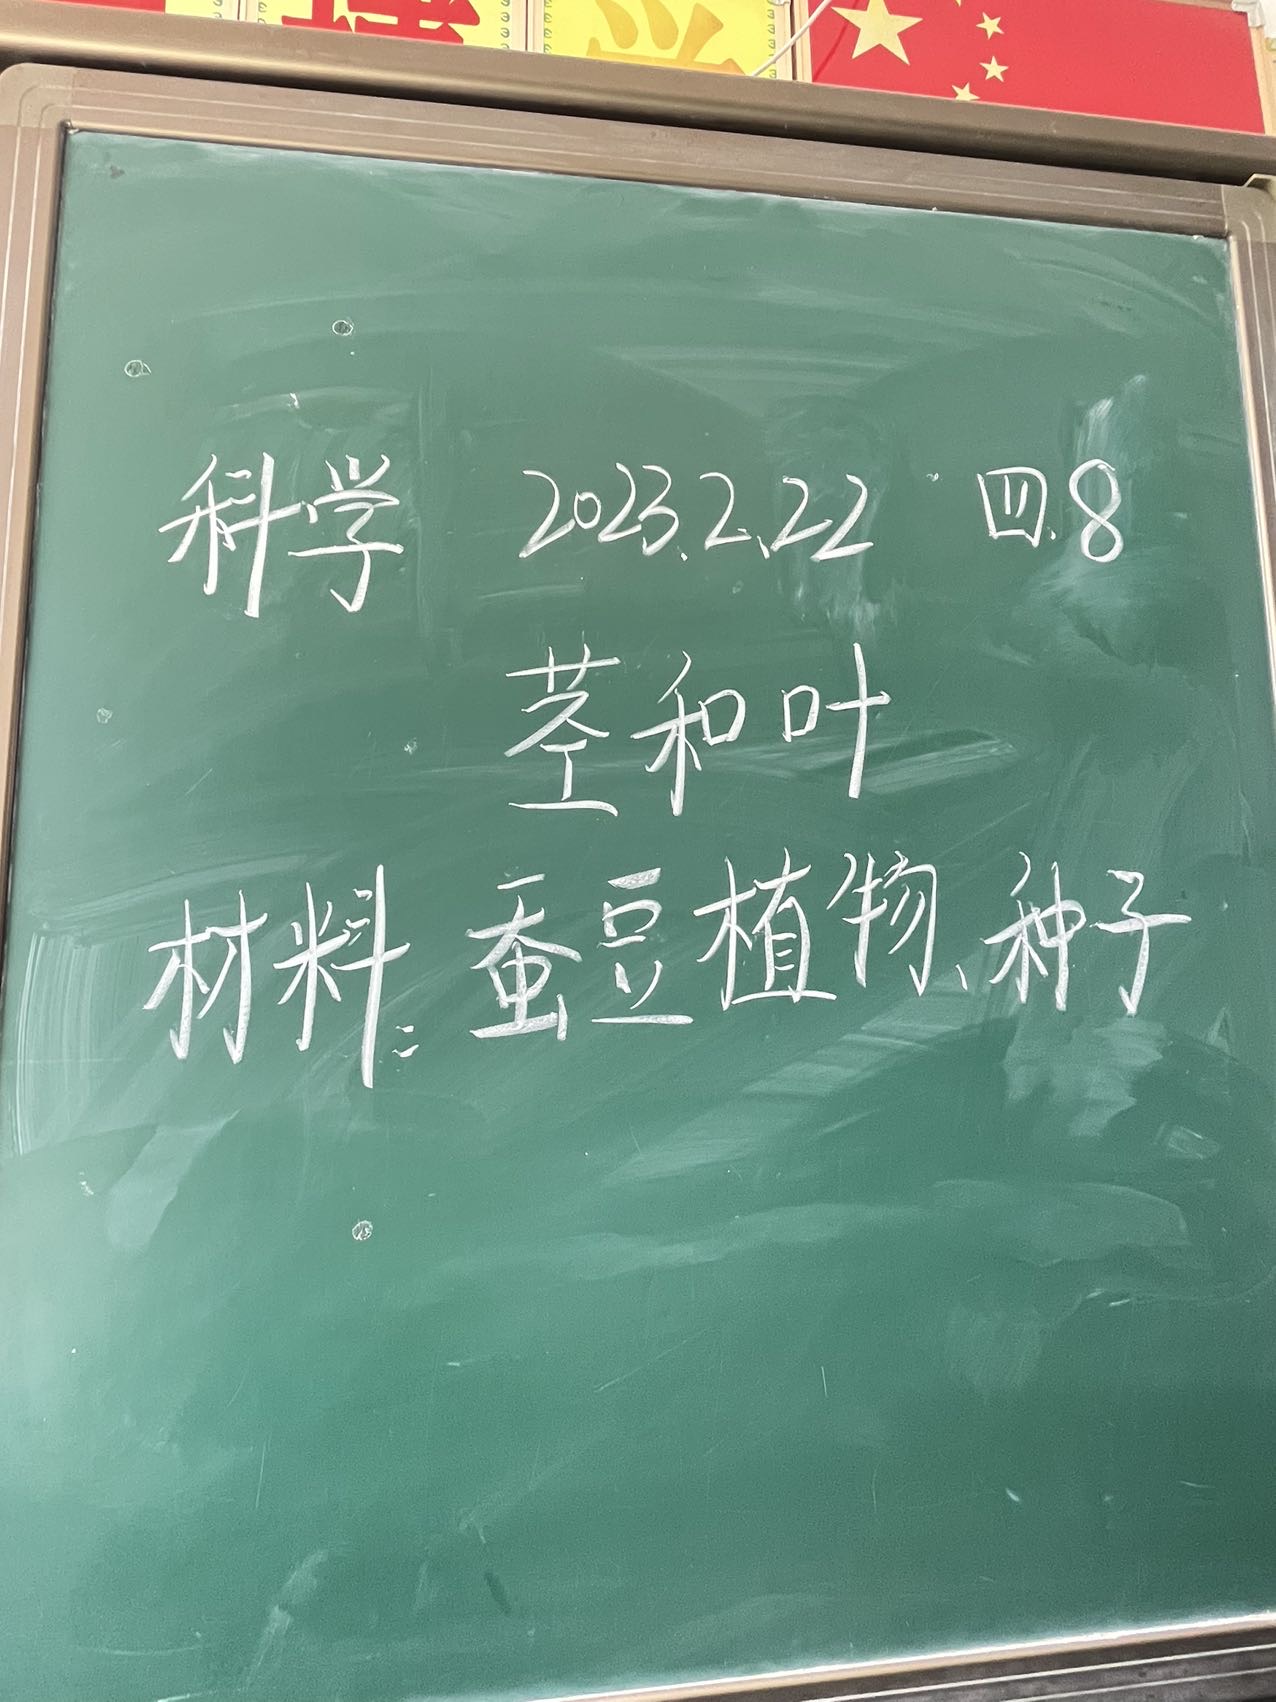 科学 2023.2.22 四.8
茎和叶
材料:蚕豆植物、种子